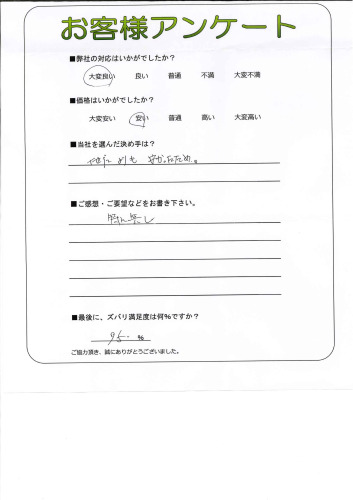 お客様アンケート
■弊社の対応はいかがでしたか?
大変良い 良い 普通 不満 大変不満
■価格はいかがでしたか?
大変安い 安い 普通 高い 大変高い
■当社を選んだ決め手は?
よりも 安かったため。
■ご感想・ご要望などをお書き下さい。
特に無し
■最後に、ズバリ満足度は何%ですか?
95 %
ご協力頂き、誠にありがとうございました。